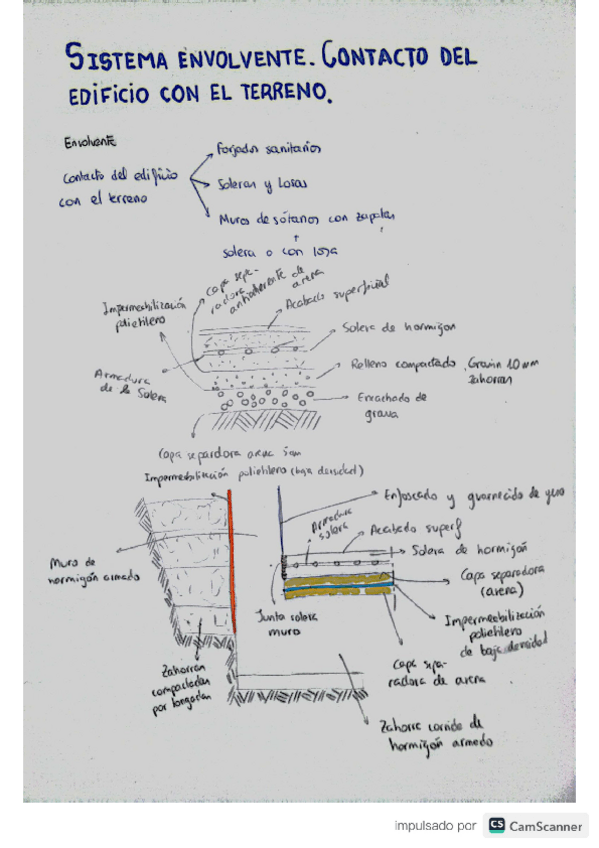 SISTEMA ENVOLVENTE. CONTACTO DEL
EDIFICIO CON EL TERRENO.
Envolvente
Contacto del edificio
con el terreno
Forjados sanitarios
Soleras y Losas
Muros de sótanos con zapatas
solera o con losa
Impermeabilización
polietileno
Capa sepa-
radora
antiadherente de
arena
Acabado superficial
Solera de hormigon
Armadura
de la Solera
Relleno compactado. Gravin 10 mm
zahorras
Enrachado de
grava
Capa separdora arena 5cm
Impermeabilización polietileno (baja densidad)
Enfoscado y guarnecido de yeso
Armadura
solera
Acabado superf
Solera de hormigón
Muro de
hormigón armado
Capa separadora
(arena)
Junta solera
muro
Impermeabilización
polietileno
de baja densidad
Capa sepa-
radora de arena
Zahorras
compactadas
por tongadas
corrido de
hormigón armado
impulsado por CS CamScanner